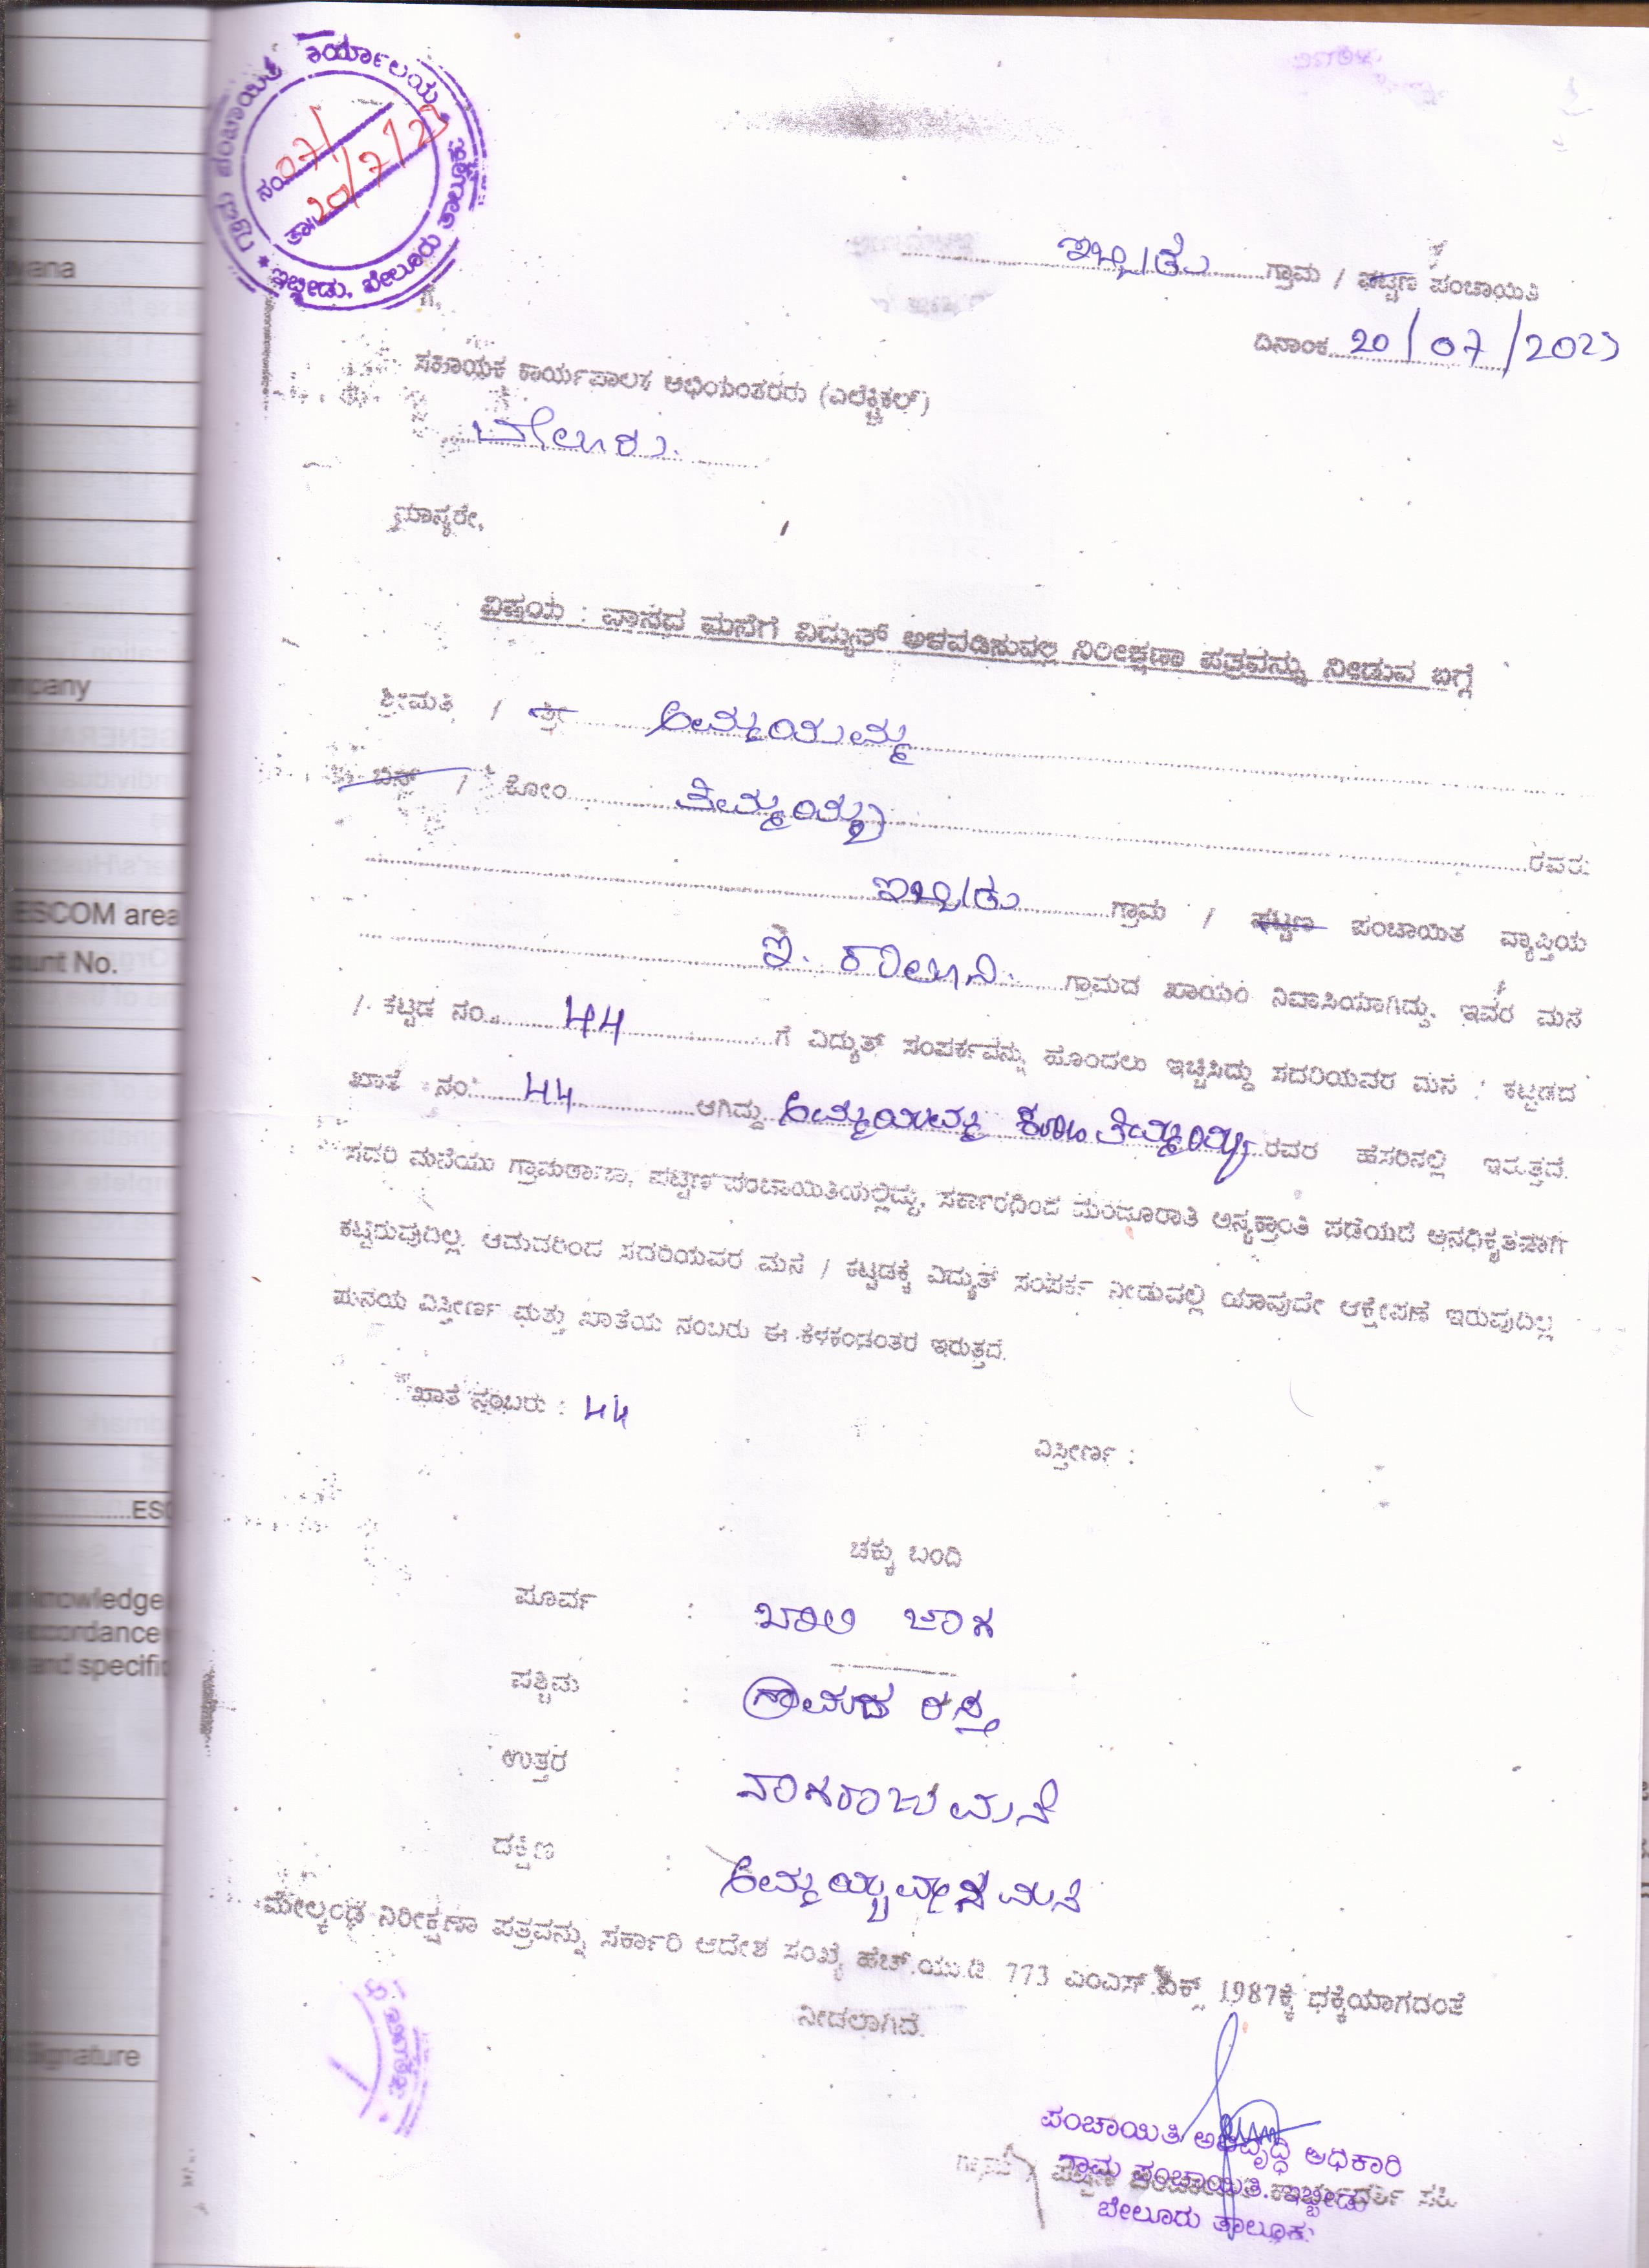 ಗ್ರಾಮ ಪಂಚಾಯಿತಿ ಕಾರ್ಯಾಲಯ
ನಂ 07/
ತಾ: 20/7/23
ಇಬ್ಬೀಡು, ಬೇಲೂರು ತಾಲ್ಲೂಕು
ಇಬ್ಬೀಡು ಗ್ರಾಮ / ಪಟ್ಟಣ ಪಂಚಾಯಿತಿ
ದಿನಾಂಕ 20/07/2023
ಗೆ,
ಸಹಾಯಕ ಕಾರ್ಯಪಾಲಕ ಅಭಿಯಂತರರು (ಎಲೆಕ್ಟ್ರಿಕಲ್)
ಬೇಲೂರು.
ಮಾನ್ಯರೇ,
ವಿಷಯ : ವಾಸದ ಮನೆಗೆ ವಿದ್ಯುತ್ ಅಳವಡಿಸುವಲ್ಲಿ ನಿರೀಕ್ಷಣಾ ಪತ್ರವನ್ನು ನೀಡುವ ಬಗ್ಗೆ
ಶ್ರೀಮತಿ / ಶ್ರೀ
ಬಿನ್ / ಕೋಂ ತಿಮ್ಮಯ್ಯ ರವರು
ಇಬ್ಬೀಡು ಗ್ರಾಮ / ಪಟ್ಟಣ ಪಂಚಾಯಿತ ವ್ಯಾಪ್ತಿಯ
ಇ. ಕಾಲೂನಿ. ಗ್ರಾಮದ ಖಾಯಂ ನಿವಾಸಿಯಾಗಿದ್ದು, ಇವರ ಮನೆ
/ ಕಟ್ಟಡ ನಂ. 44 ಗೆ ವಿದ್ಯುತ್ ಸಂಪರ್ಕವನ್ನು ಹೊಂದಲು ಇಚ್ಚಿಸಿದ್ದು ಸದರಿಯವರ ಮನೆ / ಕಟ್ಟಡದ
ಖಾತೆ ನಂ 44 ಆಗಿದ್ದು ಕೋಂ ತಿಮ್ಮಯ್ಯ ರವರ ಹೆಸರಿನಲ್ಲಿ ಇರುತ್ತದೆ.
ಸದರಿ ಮನೆಯು ಗ್ರಾಮಠಾಣಾ, ಪಟ್ಟಣ ಪಂಚಾಯಿತಿಯಲ್ಲಿದ್ದು, ಸರ್ಕಾರಧಿಂದ ಮಂಜೂರಾತಿ ಅನ್ಯಕ್ರಾಂತಿ ಪಡೆಯದೆ ಅನಧಿಕೃತವಾಗಿ
ಕಟ್ಟಿರುವುದಿಲ್ಲ. ಆದುದರಿಂದ ಸದರಿಯವರ ಮನೆ / ಕಟ್ಟಡಕ್ಕೆ ವಿದ್ಯುತ್ ಸಂಪರ್ಕ ನೀಡುವಲ್ಲಿ ಯಾವುದೇ ಆಕ್ಷೇಪಣೆ ಇರುವುದಿಲ್ಲ
ಮನೆಯ ವಿಸ್ತೀರ್ಣ ಮತ್ತು ಖಾತೆಯ ನಂಬರು ಈ ಕೆಳಕಂಡಂತರ ಇರುತ್ತದೆ.
ಖಾತೆ ನಂಬರು : 44
ವಿಸ್ತೀರ್ಣ :
ಚಕ್ಕು ಬಂದಿ
ಪೂರ್ವ : ಖಾಲಿ ಜಾಗ
ಪಶ್ಚಿಮ : ಗ್ರಾಮದ ರಸ್ತೆ
ಉತ್ತರ : ನಾಗರಾಜು ಮನೆ
ದಕ್ಷಿಣ : ಮನೆ
ಮೇಲ್ಕಂಡ ನಿರೀಕ್ಷಣಾ ಪತ್ರವನ್ನು ಸರ್ಕಾರಿ ಆದೇಶ ಸಂಖ್ಯೆ ಹೆಚ್.ಯು.ಡಿ. 773 ಎಂಎಸ್.ಪಿಕ್ಸ್ 1987ಕ್ಕೆ ಧಕ್ಕೆಯಾಗದಂತೆ
ನೀಡಲಾಗಿದೆ.
ಪಂಚಾಯಿತಿ ಅಭಿವೃದ್ಧಿ ಅಧಿಕಾರಿ
ಗ್ರಾಮ ಪಂಚಾಯಿತಿ. ಇಬ್ಬೀಡು
ಬೇಲೂರು ತಾಲ್ಲೂಕು